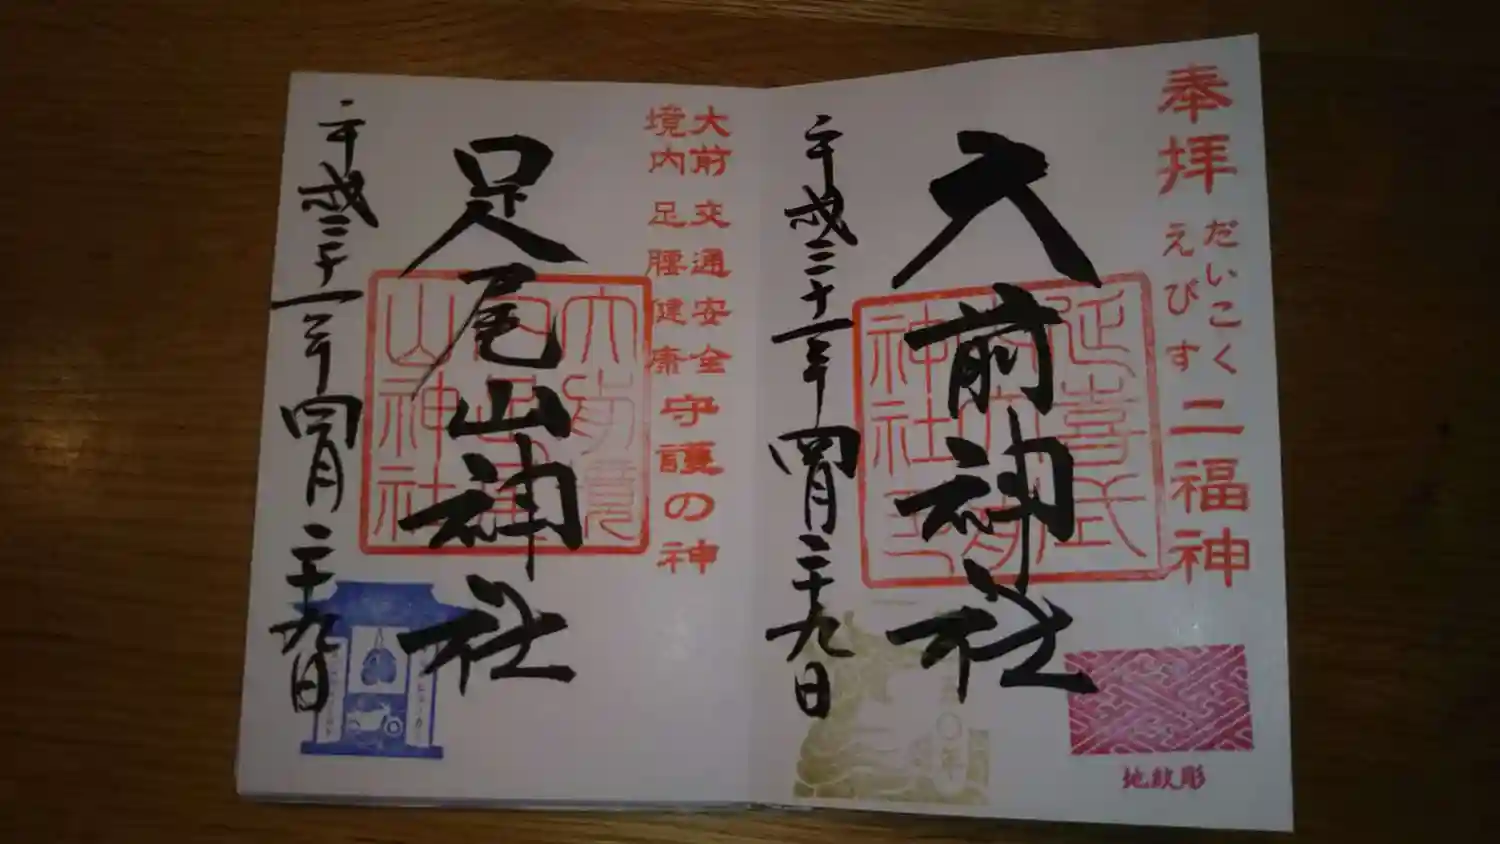 奉拝
だいこく
えびす
二福神
大前神社
延喜式
神社
平成三十一年四月二十九日
地紋彫
大前
境内
交通安全
足腰健康
守護の神
足尾山神社
大前境
山神社
平成三十一年四月二十九日